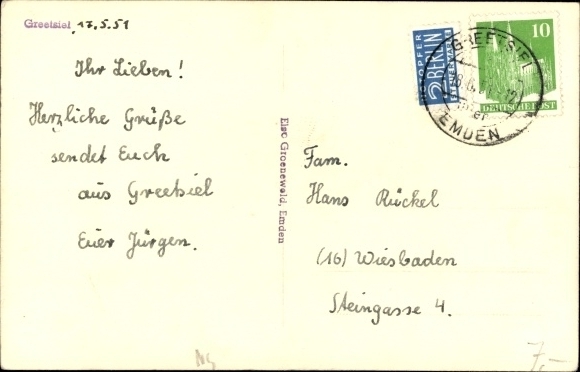 Greetsiel, 17.5.51
Ihr Lieben!
Herzliche Grüße
sendet Euch
aus Greetsiel
Euer Jürgen.
Else Groenewold, Emden
NOTOPFER
2 BERLIN
STEUERMARKE
10
DEUTSCHE POST
GREETSIEL
über
EMDEN
Fam.
Hans Rückel
(16) Wiesbaden
Steingasse 4.
7,-